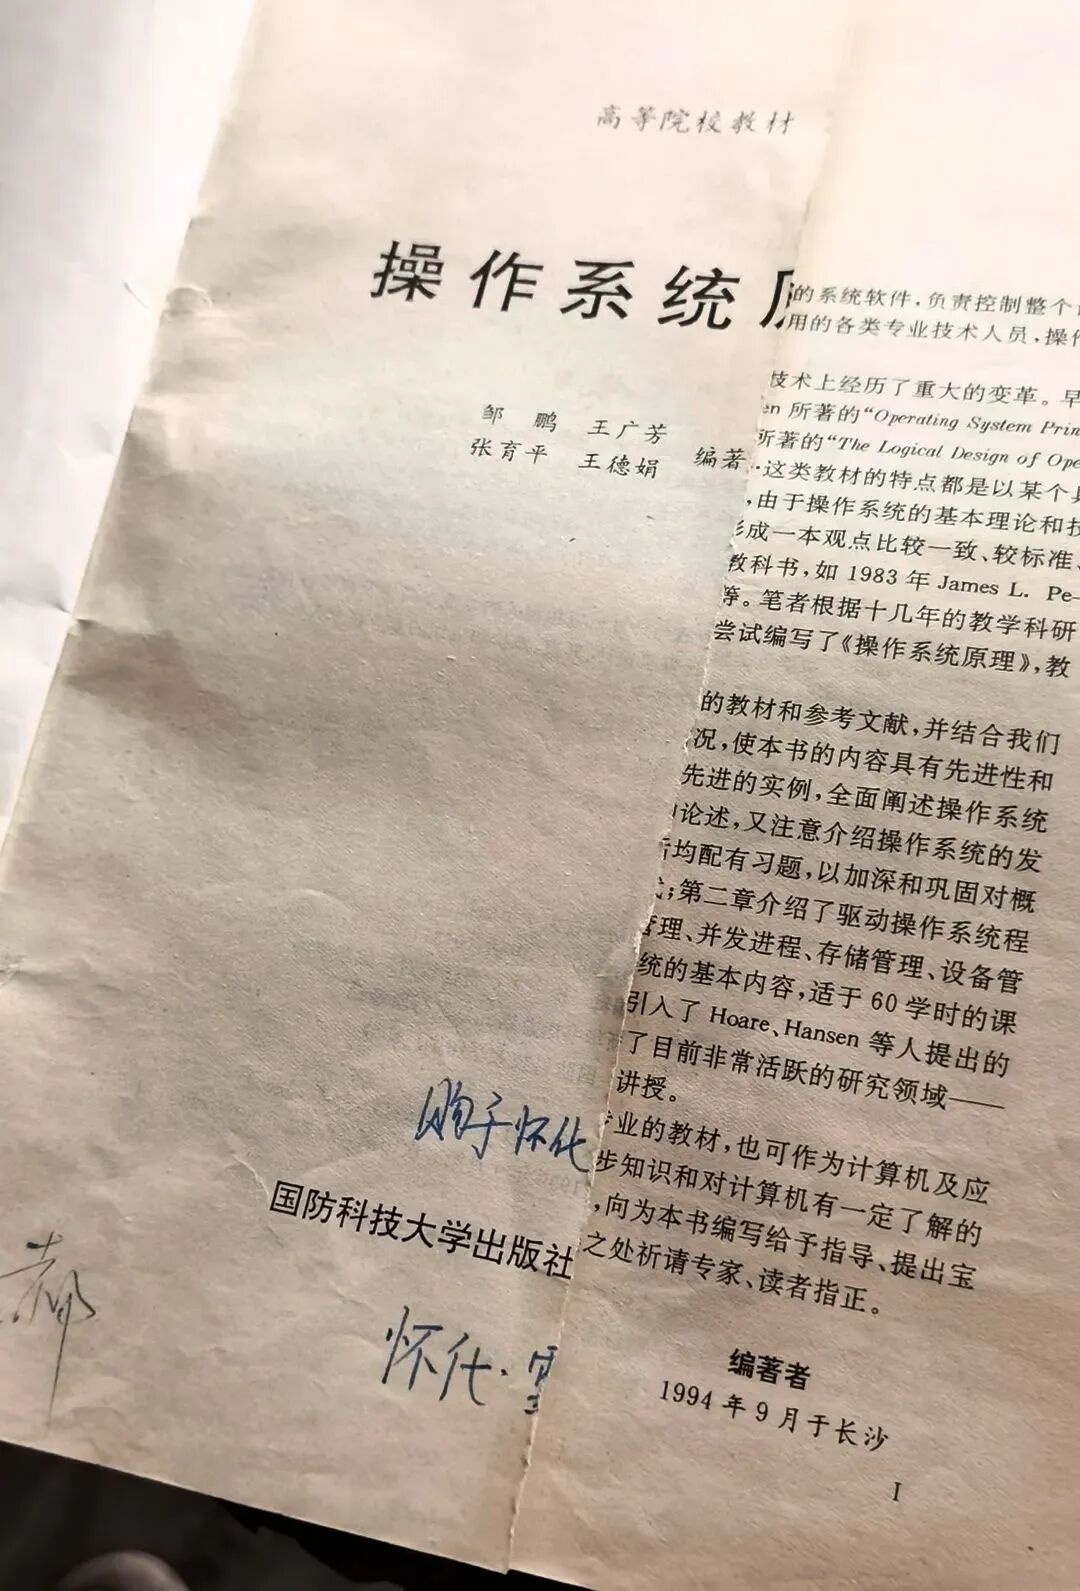 高等院校教材
操作系统
邹鹏 王广芳
张育平 王德娟 编著
国防科技大学出版社
怀化·
的系统软件,负责控制整个
用的各类专业技术人员,操作
技术上经历了重大的变革。早
en 所著的“Operating System Prin
所著的“The Logical Design of Ope
这类教材的特点都是以某个具
,由于操作系统的基本理论和技
形成一本观点比较一致、较标准、
教科书,如 1983 年 James L. Pe-
等。笔者根据十几年的教学科研
尝试编写了《操作系统原理》,教
的教材和参考文献,并结合我们
况,使本书的内容具有先进性和
先进的实例,全面阐述操作系统
论述,又注意介绍操作系统的发
后均配有习题,以加深和巩固对概
;第二章介绍了驱动操作系统程
管理、并发进程、存储管理、设备管
统的基本内容,适于 60 学时的课
引入了 Hoare、Hansen 等人提出的
了目前非常活跃的研究领域——
讲授。
业的教材,也可作为计算机及应
步知识和对计算机有一定了解的
,向为本书编写给予指导、提出宝
之处祈请专家、读者指正。
编著者
1994 年 9 月于长沙
I